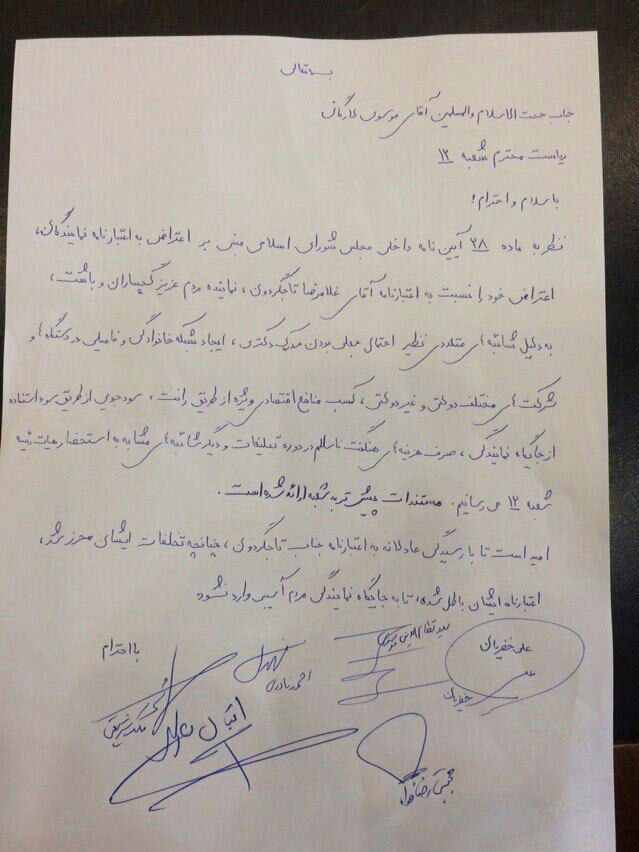 بسمه تعالی
جناب حجت الاسلام والمسلمین آقای موسوی لارگانی
ریاست محترم شعبه ۱۲
با سلام و احترام!
نظر به ماده ۲۸ آیین نامه داخلی مجلس شورای اسلامی مبنی بر اعتراض به اعتبارنامه نمایندگان،
اعتراض خود را نسبت به اعتبارنامه آقای غلامرضا تاجگردون، نماینده مردم عزیز گچساران و باشت،
به دلیل شائبه های متعددی نظیر احتمال جعلی بودن مدرک دکتری، ایجاد شبکه خانوادگی و فامیلی در دستگاه ها و
شرکت های مختلف دولتی و غیر دولتی، کسب منافع اقتصادی ویژه از طریق رانت، سودجویی از طریق سوء استفاده
از جایگاه نمایندگی، صرف هزینه های هنگفت ناسالم در دوره تبلیغات و دیگر شائبه های مشابه به استحضار هیات رئیسه
شعبه ۱۲ می رسانیم. مستندات پیش تر به شعبه ارائه شده است.
امید است تا با رسیدگی عادلانه به اعتبارنامه جناب تاجگردون، چنانچه تخلفات ایشان محرز شد،
اعتبارنامه ایشان باطل شده، تا به جایگاه نمایندگی مردم آسیبی وارد نشود
با احترام
علی خضریان
علی خضریان
سید نظام الدین موسوی
احمد نادری
مالک شریعتی
اقبال
مجتبی رضاخواه